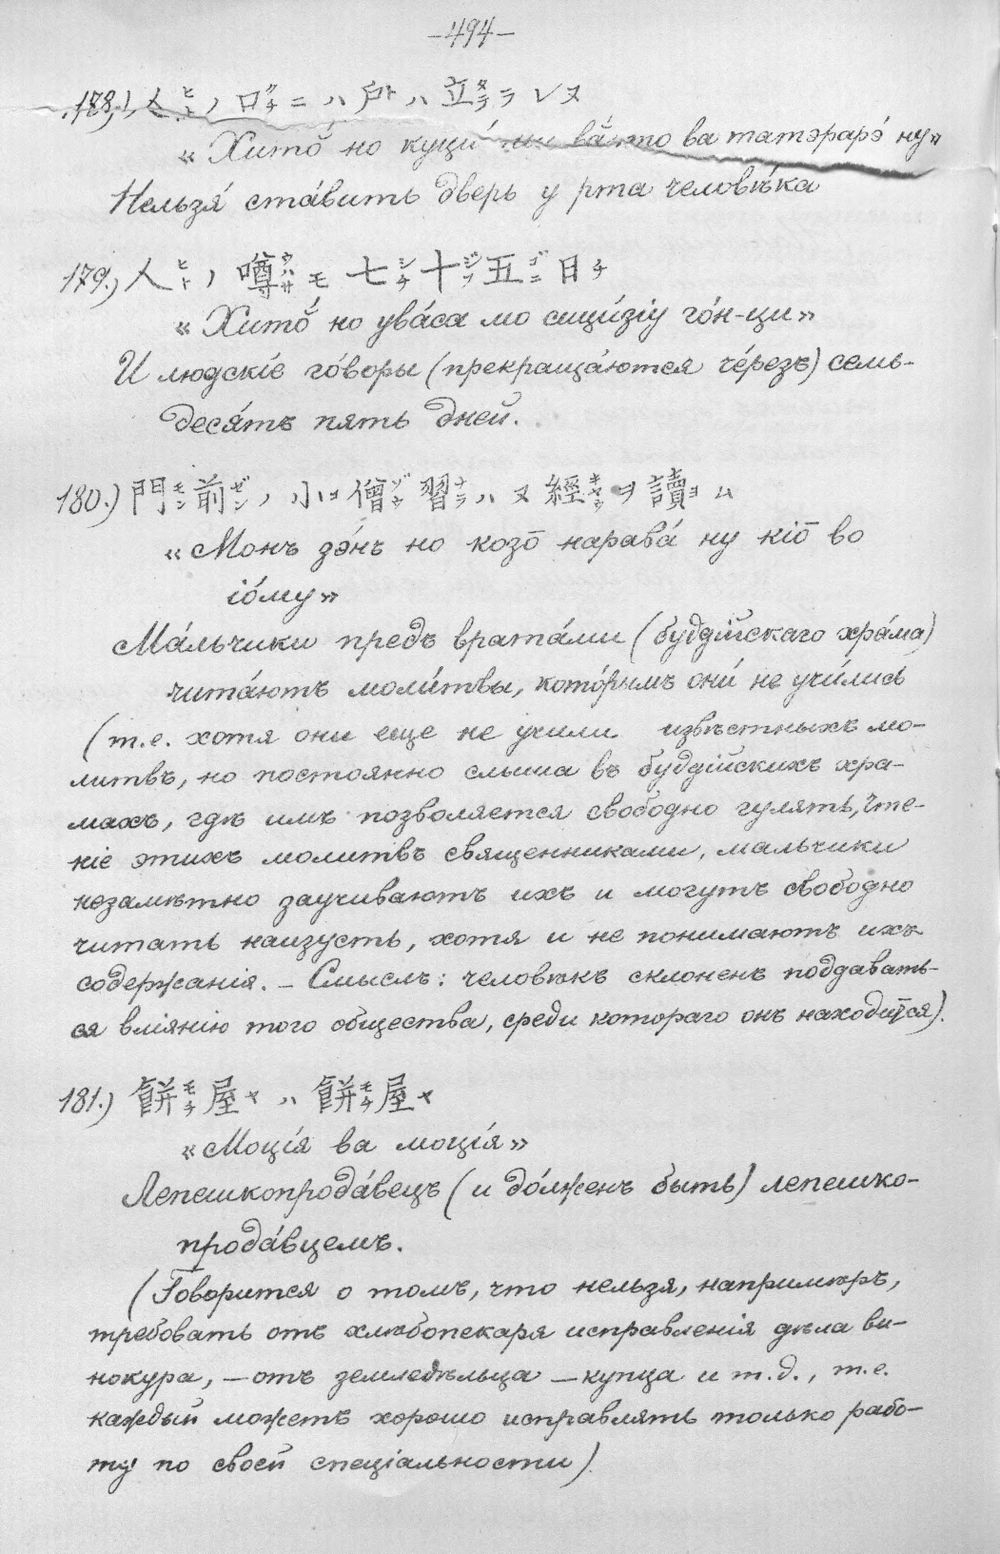 -494-
178.) 人ヒトノ口クチニハ戸トハ立タテラレヌ
«Хито́ но куци́ ни ва то ва татэрарэ́ ну»
Нельзя́ ста́вить дверь у рта человѣка
179.) 人ヒトノ噂ウハサモ七シチ十ジフ五ゴ日ニチ
«Хито́ но ува́са мо сици́зіу го́н-ци»
И людскі́е го́воры (прекраща́ются че́резъ) семь-
деся́тъ пять дней.
180.) 門モン前ゼンノ小コ僧ゾウ習ナラハヌ經キヤウヲ讀ヨム
«Монъ зэ́нъ но козо̄ нарава́ ну кіо̄ во
іо́му»
Ма́льчики предъ врата́ми (будді́йскаго хра́ма)
чита́ютъ моли́твы, кото́рымъ они́ не учи́лись
(т.е. хотя они еще не учили извѣстныхъ мо-
литвъ, но постоянно слыша въ буддійскихъ хра-
махъ, гдѣ имъ позволяется свободно гулять, чте-
ніе этихъ молитвъ священниками, мальчики
незамѣтно заучиваютъ ихъ и могутъ свободно
читать наизусть, хотя и не понимаютъ ихъ
содержанія. – Смыслъ: человѣкъ склоненъ поддавать-
ся вліянію того общества, среди котораго онъ находится).
181.) 餅モチ屋ヤハ餅モチ屋ヤ
«Моці́я ва моці́я»
Лепешкопрода́вецъ (и до́лженъ быть) лепешко-
прода́вцемъ.
(Говорится о томъ, что нельзя, напримѣръ,
требовать отъ хлѣбопекаря исправленія дѣла ви-
нокура, – отъ земледѣльца – купца и т.д., т.е.
каждый можетъ хорошо исправлять только рабо-
ту по своей спеціальности).